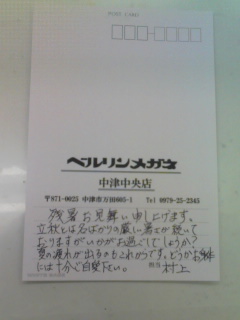 POST CARD
ベルリンメガネ
中津中央店
〒871-0025 中津市万田605-1 Tel 0979-25-2345
残暑お見舞い申し上げます。
立秋とは名ばかりの厳しい暑さが続いて
おりますがいかがお過ごしでしょうか?
夏の疲れが出るのもこれからです。どうかお身体
には十分ご自愛下さい。 担当 村上